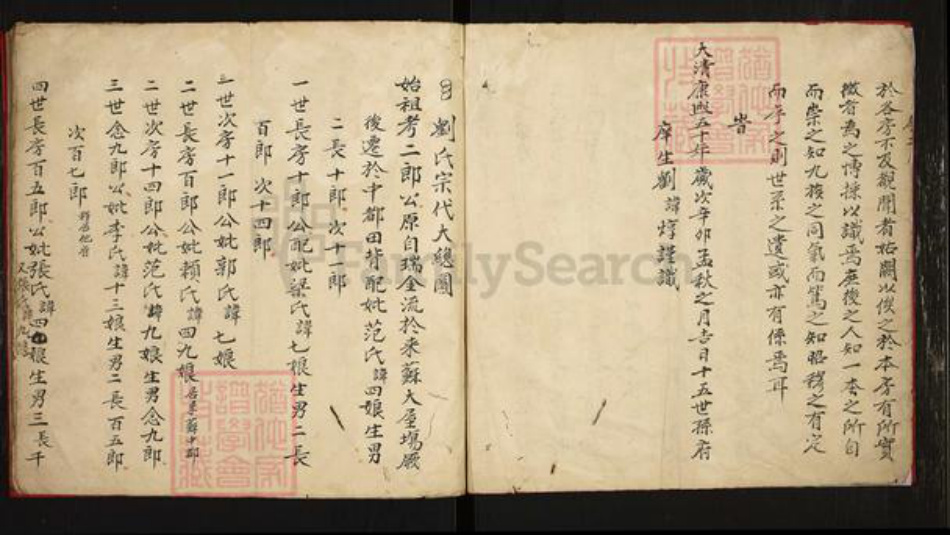 於各房不及觀聞者姑闕以俟之於本房有所實
微者為之博採以識焉庶後之人知一本之所自
而崇之知九族之同氣而篤之知昭穆之有定
而序之則世系之遺或亦有係焉耳
旹
大清康熙五十年歲次辛卯孟秋之月吉日十五世孫府
庠生劉諱焞謹識
劉氏宗代大總圖
始祖考二郎公原自瑞金流於來蘇大屋塲厥
後遷於中都田背配妣范氏諱四娘生男
二長十郎次十一郎
一世長房十郎公配妣梁氏諱七娘生男二長
百郎 次十四郎
一世次房十一郎公妣郭氏諱七娘
二世長房百郎公妣賴氏諱四九娘居來蘇中都
二世次房十四郎公妣范氏諱九娘生男念九郎
三世念九郎公妣李氏諱十三娘生男二長百五郎
次百七郎移居他方
四世長房百五郎公妣張氏諱四九娘生男三長千
又張氏諱九娘
FamilySearch